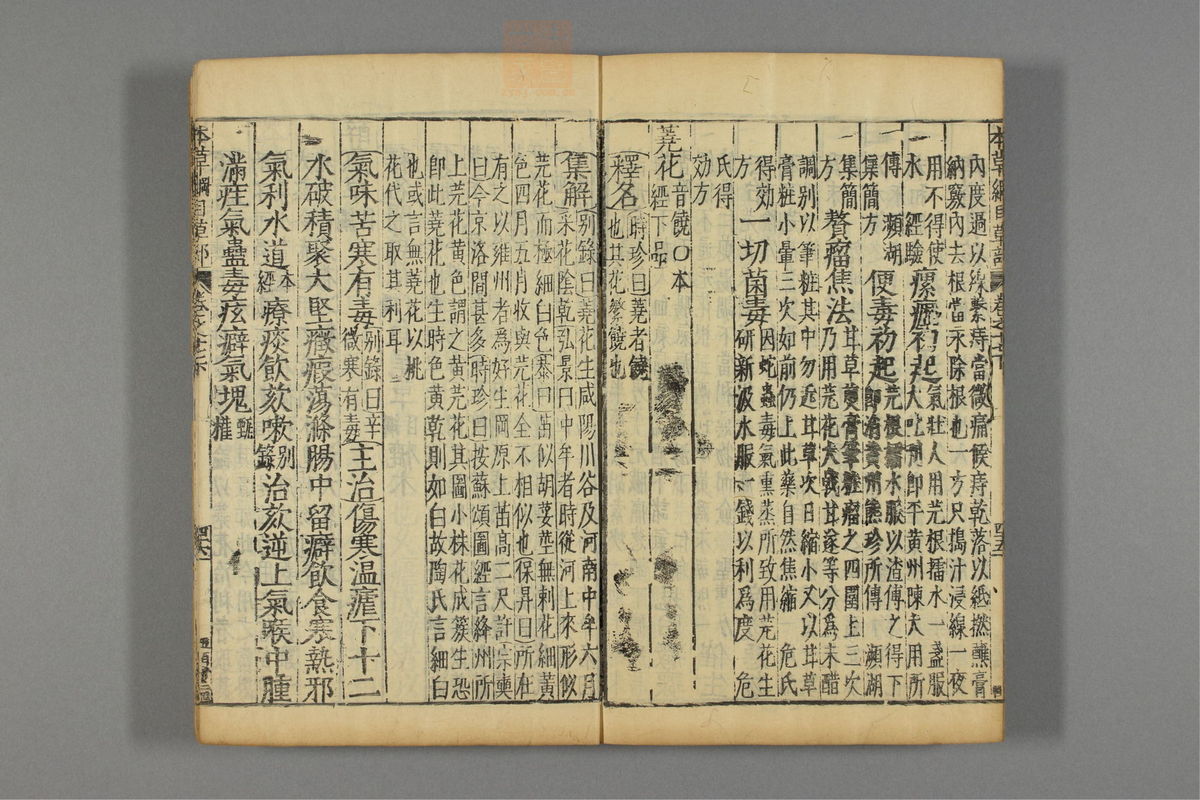 內度過以線繫痔當微痛候痔乾落以紙撚蘸膏
納竅內去根當永除根也一方只搗汁浸線一夜
用不得使
水 經驗 瘰癧初起 氣壯人用芫根擂水一盞服
大吐利即平黃州陳大用所
傳 瀕湖
集簡方 便毒初起 芫根擂水服以渣傅之得下
即消黃州熊珍所傳 瀕湖
集簡
方 贅瘤焦法 甘草煎膏筆粧瘤之四圍上三次
乃用芫花大戟甘遂等分為末醋
調別以筆粧其中勿近甘草次日縮小又以甘草
膏粧小暈三次如前仍上此藥自然焦縮 危氏
得効
方 一切菌毒 因蛇蟲毒氣熏蒸所致用芫花生
研新汲水服一錢以利為度 危
氏得
効方
蕘花 音饒〇本
經下品
釋名 時珍曰蕘者饒
也其花繁饒也
集解 別錄曰蕘花生咸陽川谷及河南中牟六月
采花陰乾弘景曰中牟者時從河上來形似
芫花而極細白色恭曰苗似胡荽莖無刺花細黃
色四月五月收與芫花全不相似也保昇曰所在
有之以雍州者為好生岡原上苗高二尺許宗奭
曰今京洛間甚多時珍曰按蘇頌圖經言絳州所
上芫花黃色謂之黃芫花其圖小株花成簇生恐
即此蕘花也生時色黃乾則如白故陶氏言細白
也或言無蕘花以桃
花代之取其利耳
氣味苦寒有毒 別錄曰辛
微寒有毒 主治傷寒溫瘧下十二
水破積聚大堅癥瘕蕩滌腸中留癖飲食寒熱邪
氣利水道 本
經 療痰飲欬嗽 別
錄 治欬逆上氣喉中腫
滿疰氣蠱毒痃癖氣塊 甄
權
本草綱目草部